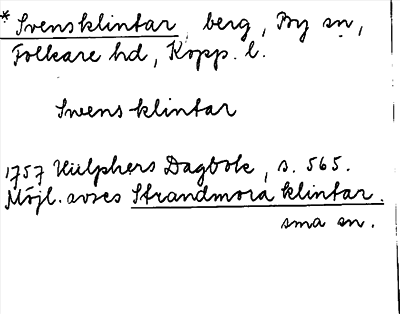 * Svensklintar, berg, By sn,
Folkare hd, Kopp. l.
Swensklintar
1757 Hülphers Dagbok, s. 565.
Möjl. avses Strandmora klintar.
sma sn.